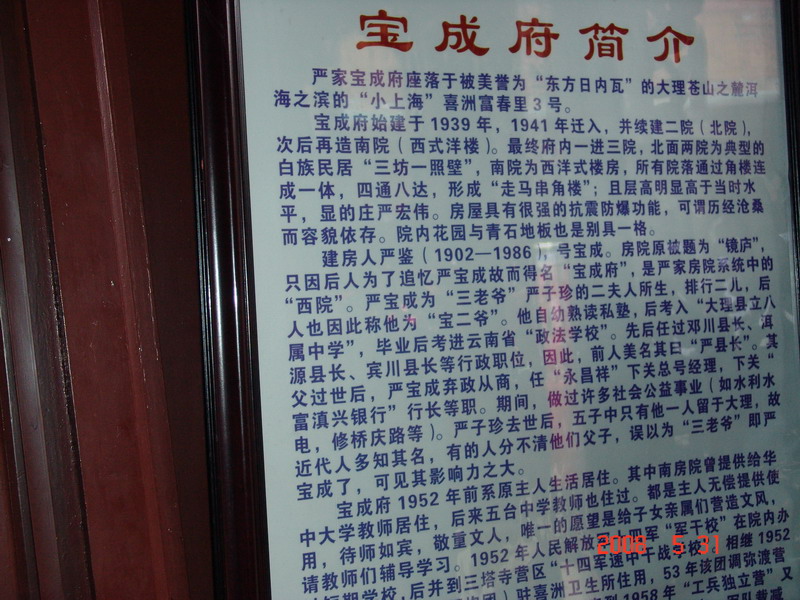 宝成府简介
严家宝成府座落于被美誉为“东方日内瓦”的大理苍山之麓洱
海之滨的“小上海”喜洲富春里3号。
宝成府始建于1939年，1941年迁入，并续建二院（北院），
次后再造南院（西式洋楼）。最终府内一进三院，北面两院为典型的
白族民居“三坊一照壁”，南院为西洋式楼房，所有院落通过角楼连
成一体，四通八达，形成“走马串角楼”；且层高明显高于当时水
平，显的庄严宏伟。房屋具有很强的抗震防爆功能，可谓历经沧桑
而容貌依存。院内花园与青石地板也是别具一格。
建房人严鉴（1902—1986），号宝成。房院原披题为“镜庐”，
只因后人为了追忆严宝成故而得名“宝成府”，是严家房院系统中的
“西院”。严宝成为“三老爷”严子珍的二夫人所生，排行二儿，后
人也因此称他为“宝二爷”。他自幼熟读私塾，后考入“大理县立八
属中学”，毕业后考进云南省“政法学校”。先后任过邓川县长、洱
源县长、宾川县长等行政职位，因此，前人美名其曰“严县长”。其
父过世后，严宝成弃政从商，任“永昌祥”下关总号经理，下关“
富滇兴银行”行长等职。期间，做过许多社会公益事业（如水利水
电，修桥庆路等）。严子珍去世后，五子中只有他一人留于大理，故
近代人多知其名，有的人分不清他们父子，误以为“三老爷”即严
宝成了，可见其影响力之大。
宝成府1952年前系原主人生活居住。其中南房院曾提供给华
中大学教师居住，后来五台中学教师也住过。都是主人无偿提供使
用，待师如宾，敬重文人，唯一的愿望是给子女亲属们营造文风，
请教师们辅导学习。1952年人民解放军十四军“军干校”在院内办
短期学校，后并到三塔寺营区“十四军速中干战学校”，相继1952
驻喜洲卫生所住用，53年该团调弥渡营
到1958年“工兵独立营”又
2008 5 31